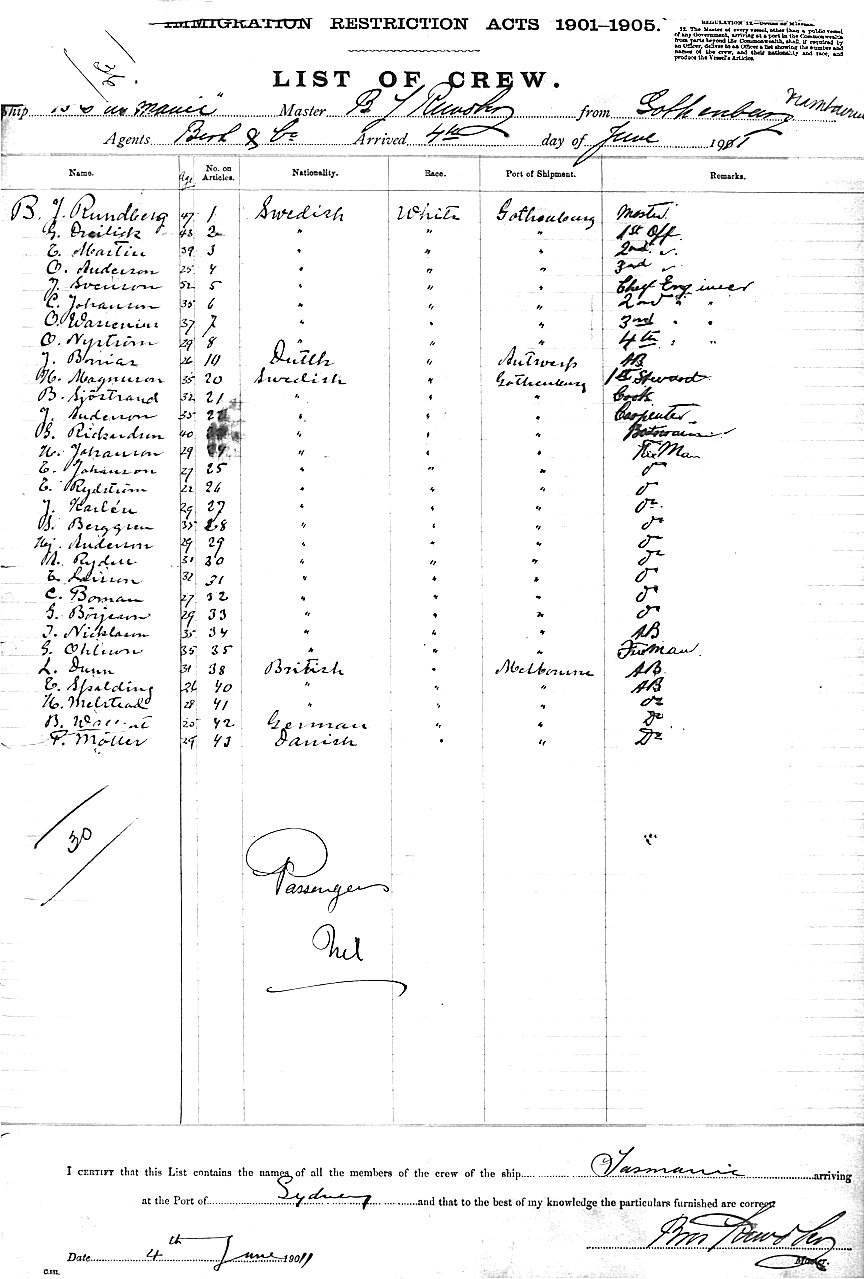 IMMIGRATION RESTRICTION ACTS 1901–1905.
REGULATION 12.
12. The Master of every vessel, other than a public vessel
of any Government, arriving at a port in the Commonwealth
from parts beyond the Commonwealth, shall, if required by
an Officer, deliver to an Officer a list showing the number and
names of the crew, and their nationality and race, and
produce the Vessel's Articles.
LIST OF CREW.
Ship Master B J from Gothenburg
Agents & Co Arrived 4th day of June 19
Name. Age No. on Articles. Nationality. Race. Port of Shipment. Remarks.
B. J. Rundberg 47 1 Swedish White Gothenburg Master
G. 48 2 " " " 1st Off.
E. Martin 39 3 " " " 2nd "
O. Anderson 25 4 " " " 3rd "
J. Svenson 52 5 " " " Chief Engineer
C. Johanson 35 6 " " " 2nd " "
O. 37 7 " " " 3rd " "
O. Nyström 29 8 " " " 4th " "
J. 26 10 Dutch " Antwerp AB
H. Magnuson 35 20 Swedish " Gothenburg 1st Steward
B. Sjöstrand 32 21 " " " Cook
J. Anderson 35 " " " Carpenter
B. Rickardson 40 " " " Botswain
H. Johanson 29 " " " Fire Man
E. Johanson 27 25 " " " do
E. Rydström 22 26 " " " do
J. Karlén 29 27 " " " do
Berggren 35 28 " " " do
Hj. Anderson 29 29 " " " do
Rydell 31 30 " " " do
E. 32 31 " " " do
C. Boman 27 32 " " " do
G. Börjeson 29 33 " " " do
Nicklason 35 34 " " " AB
G. Ohlson 35 35 " " " Fireman
L. Dunn 31 38 British " Melbourne AB
E. Spalding 26 40 " " " AB
H. Melstead 28 41 " " " do
B. 20 42 German " " Do
F. Möller 29 43 Danish " " Do
30
Passengers
Nil
I CERTIFY that this List contains the names of all the members of the crew of the ship Tasmanic arriving
at the Port of Sydney and that to the best of my knowledge the particulars furnished are correct
Date 4th June 19
Master.
C.2131.